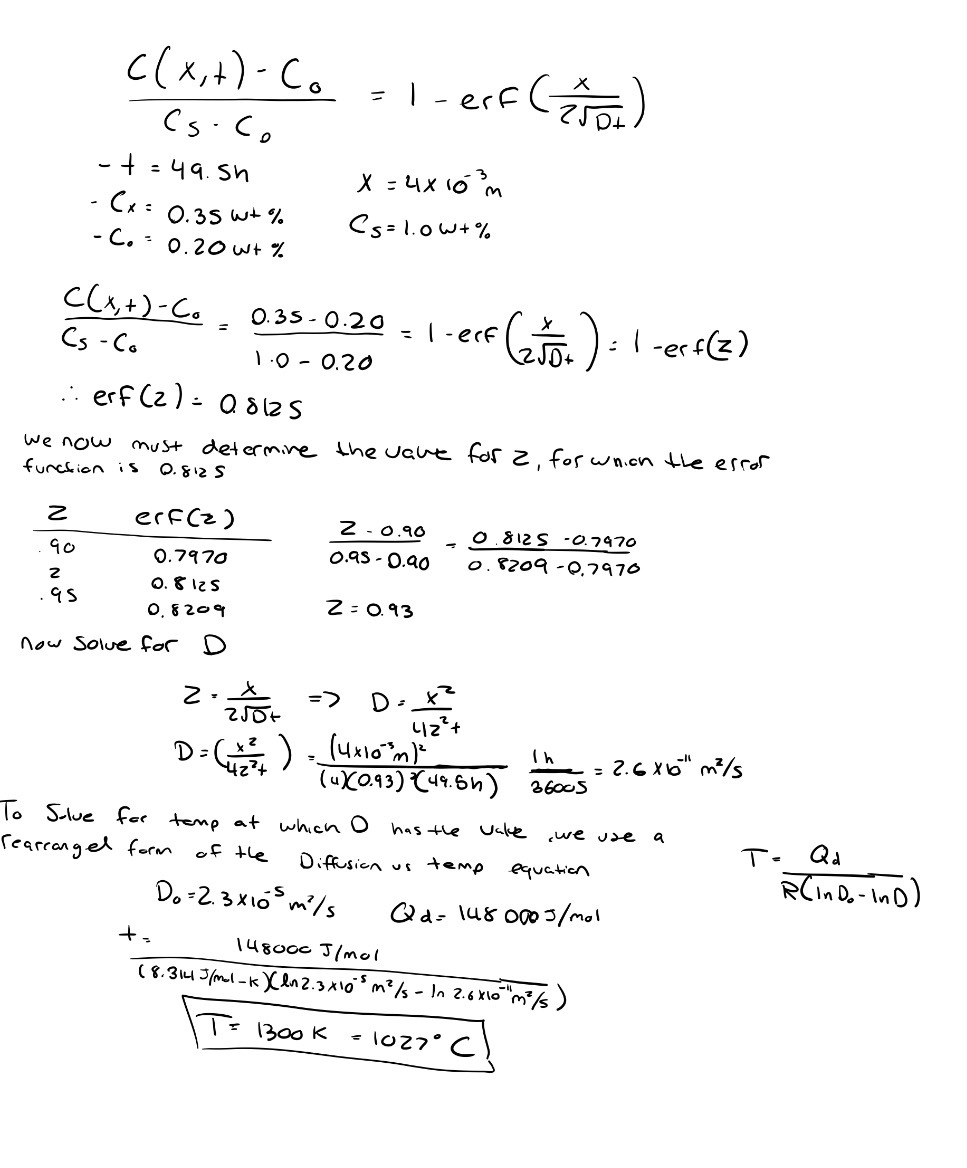 C(x,t) - C₀ / Cs - C₀ = 1 - erf(x / 2√Dt)
- t = 49.5h
x = 4x10⁻³ m
- Cx = 0.35 wt %
Cs = 1.0 wt %
- C₀ = 0.20 wt %
C(x,t) - C₀ / Cs - C₀ = 0.35 - 0.20 / 1.0 - 0.20 = 1 - erf(x / 2√Dt) = 1 - erf(z)
∴ erf(z) = 0.8125
we now must determine the value for z, for which the error
function is 0.8125
z erf(z)
.90 0.7970
z 0.8125
.95 0.8209
z - 0.90 / 0.95 - 0.90 = 0.8125 - 0.7970 / 0.8209 - 0.7970
z = 0.93
now solve for D
z = x / 2√Dt => D = x² / 4z²t
D = (x² / 4z²t) = (4x10⁻³m)² / (4)(0.93)²(49.5h) 1h / 3600s = 2.6 x10⁻¹¹ m²/s
To Solve for temp at which D has the value, we use a
rearranged form of the Diffusion vs temp equation
T = Qd / R(ln D₀ - ln D)
D₀ = 2.3x10⁻⁵ m²/s Qd = 148 000 J/mol
t = 148000 J/mol / (8.314 J/mol-K)(ln 2.3x10⁻⁵ m²/s - ln 2.6x10⁻¹¹ m²/s)
T = 1300 K = 1027° C